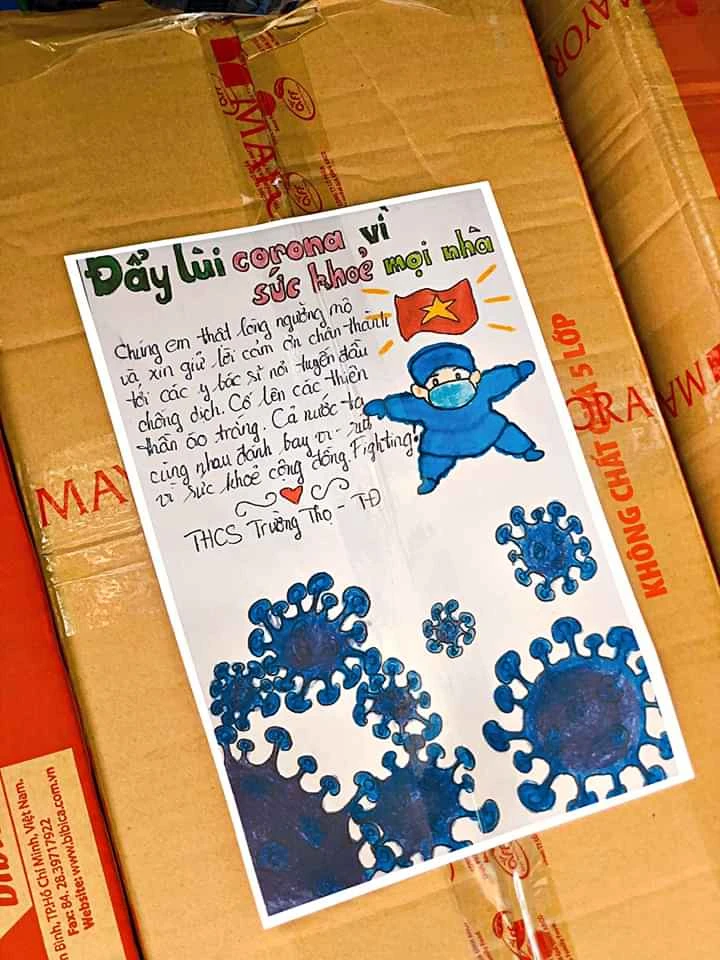 MAYOR
MAYORA
Đẩy lùi corona vì
sức khoẻ mọi nhà
Chúng em thật lòng ngưỡng mộ
và xin giử lời cảm ơn chân thành
tới các y bác sĩ nơi tuyến đầu
chống dịch. Cố lên các thiên
thần áo trắng. Cả nước ta
cùng nhau đánh bay vi-rút
vì sức khoẻ cộng đồng. Fighting!
THCS Trường Thọ - TĐ
MAY
ORA
MA
KHÔNG CHẤT QUÁ 5 LỚP
Bình, TP.Hồ Chí Minh, Việt Nam.
Fax: 84. 28.39717922
Website: www.bibica.com.vn